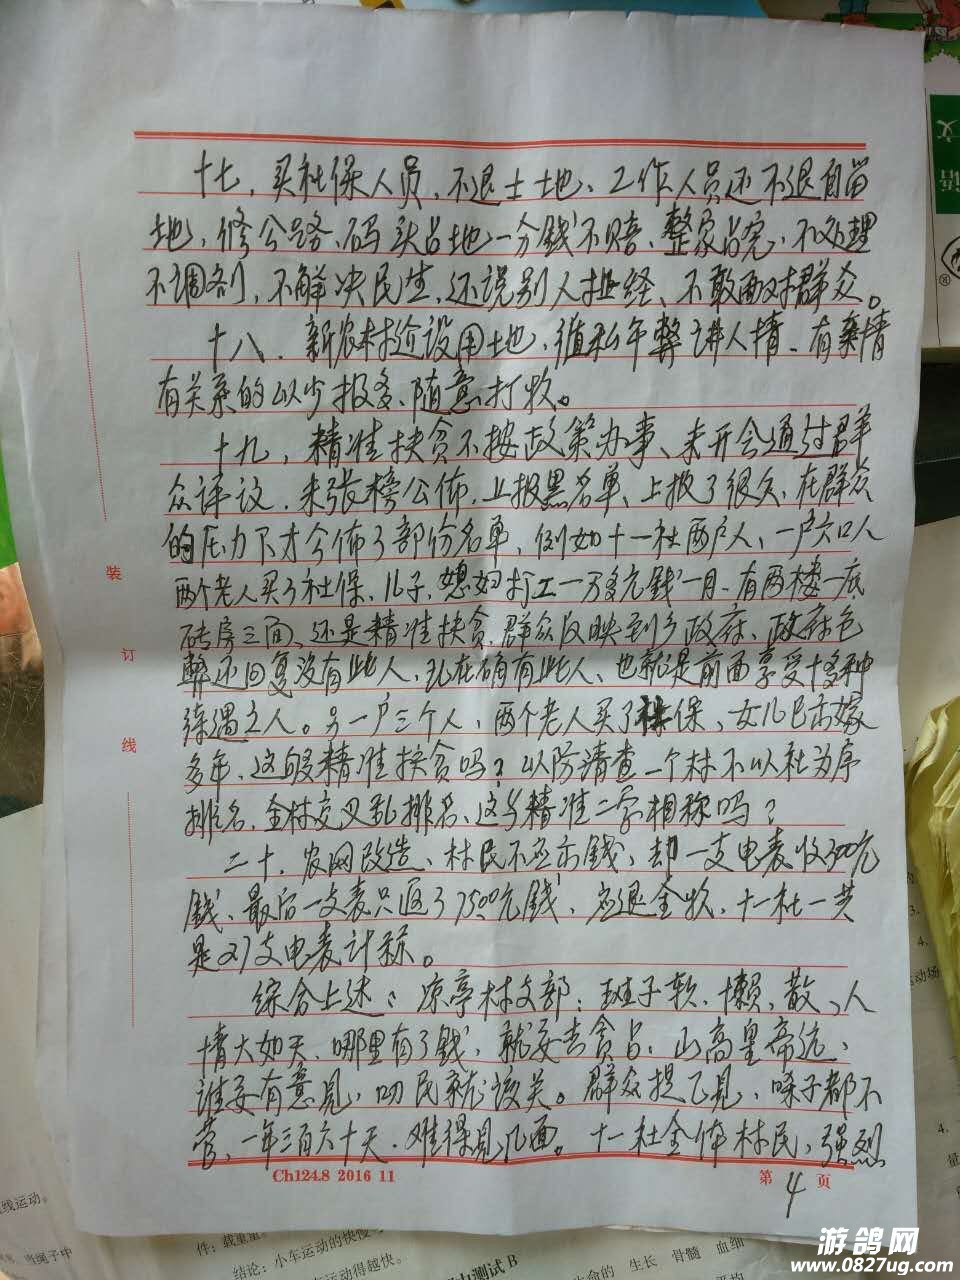 十七，买社保人员、不退土地、工作人员还不退自留
地，修公路、码头占地一分钱不赔、整家占完，不处理
不调剂，不解决民生，还说别人扯经、不敢面对群众。
十八．新农村建设用地，循私午弊讲人情、有亲情
有关系的以少报多、随意打收。
十九，精准扶贫不按政策办事、未开会通过群
众评议．未张榜公佈．上报黑名单、上报了很久，在群众
的压力下才公佈了部份名单，例如十一社两户人，一户六口人
两个老人买了社保，儿子，媳妇打工一万多元钱一月、有两楼一底
砖房三间、还是精准扶贫，群众反映到乡政府、政府包
弊还回复没有此人，现在确有此人、也就是前面享受十多种
待遇之人。另一户三个人，两个老人买了社保，女儿已出嫁
多年，这够精准扶贫吗？以防清查一个村不以社为序
排名，全村交叉乱排名、这与精准二字相称吗？
二十．农网改造，村民不应出钱，却一支电表收300元
钱，最后一支表只返了7500元钱，应退全收，十一社一共
是27支电表计称。
综合上述：凉亭村支部：班子软、懒、散、人
情大如天、哪里有了钱，就要去贪占，山高皇帝远、
谁要有意见，叨民就该关。群众提己见，嗓子都不
管，一年三百六十天．难得见几面。十一社全体村民，强烈
装
订
线
Ch124.8 2016 11
第 4 页
语
文
®
3.
4.
运动场
4.
量
线运动。
当绳子中
件：载重量。
小车运动的快慢
结论：小车运动得越快。
力测试B
生命的
生长
骨髓
血细
游鸽网
www.0827ug.com